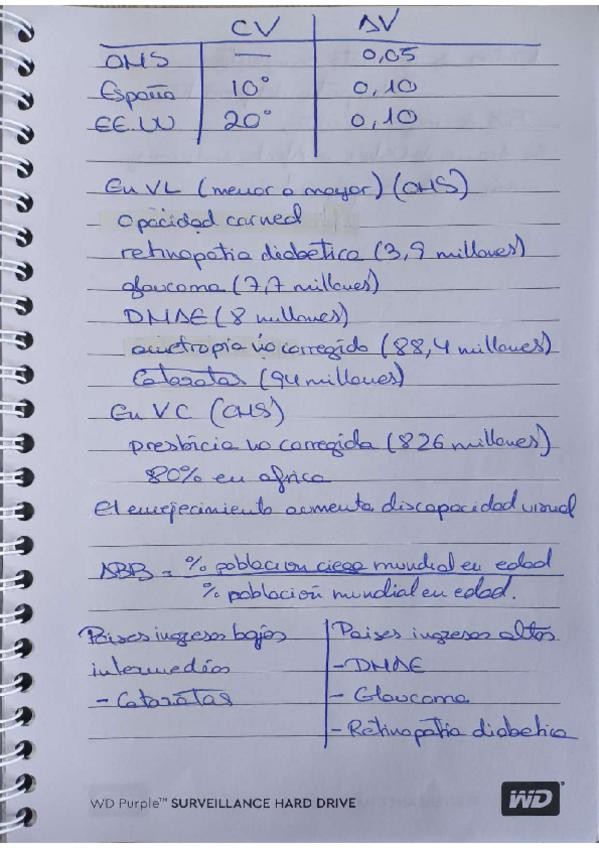 CV AV
OMS — 0,05
España 10° 0,10
EE.UU 20° 0,10
En VL (menor a mayor) (OMS)
opacidad corneal
retinopatia diabética (3,9 millones)
glaucoma (7,7 millones)
DMAE (8 millones)
ametropia no corregida (88,4 millones)
Cataratas (94 millones)
En VC (OMS)
presbicia no corregida (826 millones)
80% en africa
El envejecimiento aumenta discapacidad visual
= % poblacion ciega mundial en edad
% población mundial en edad.
Paises ingresos bajos Paises ingresos altos
intermedios - DMAE
- Cataratas - Glaucoma
- Retinopatia diabetica
WD Purple™ SURVEILLANCE HARD DRIVE WD